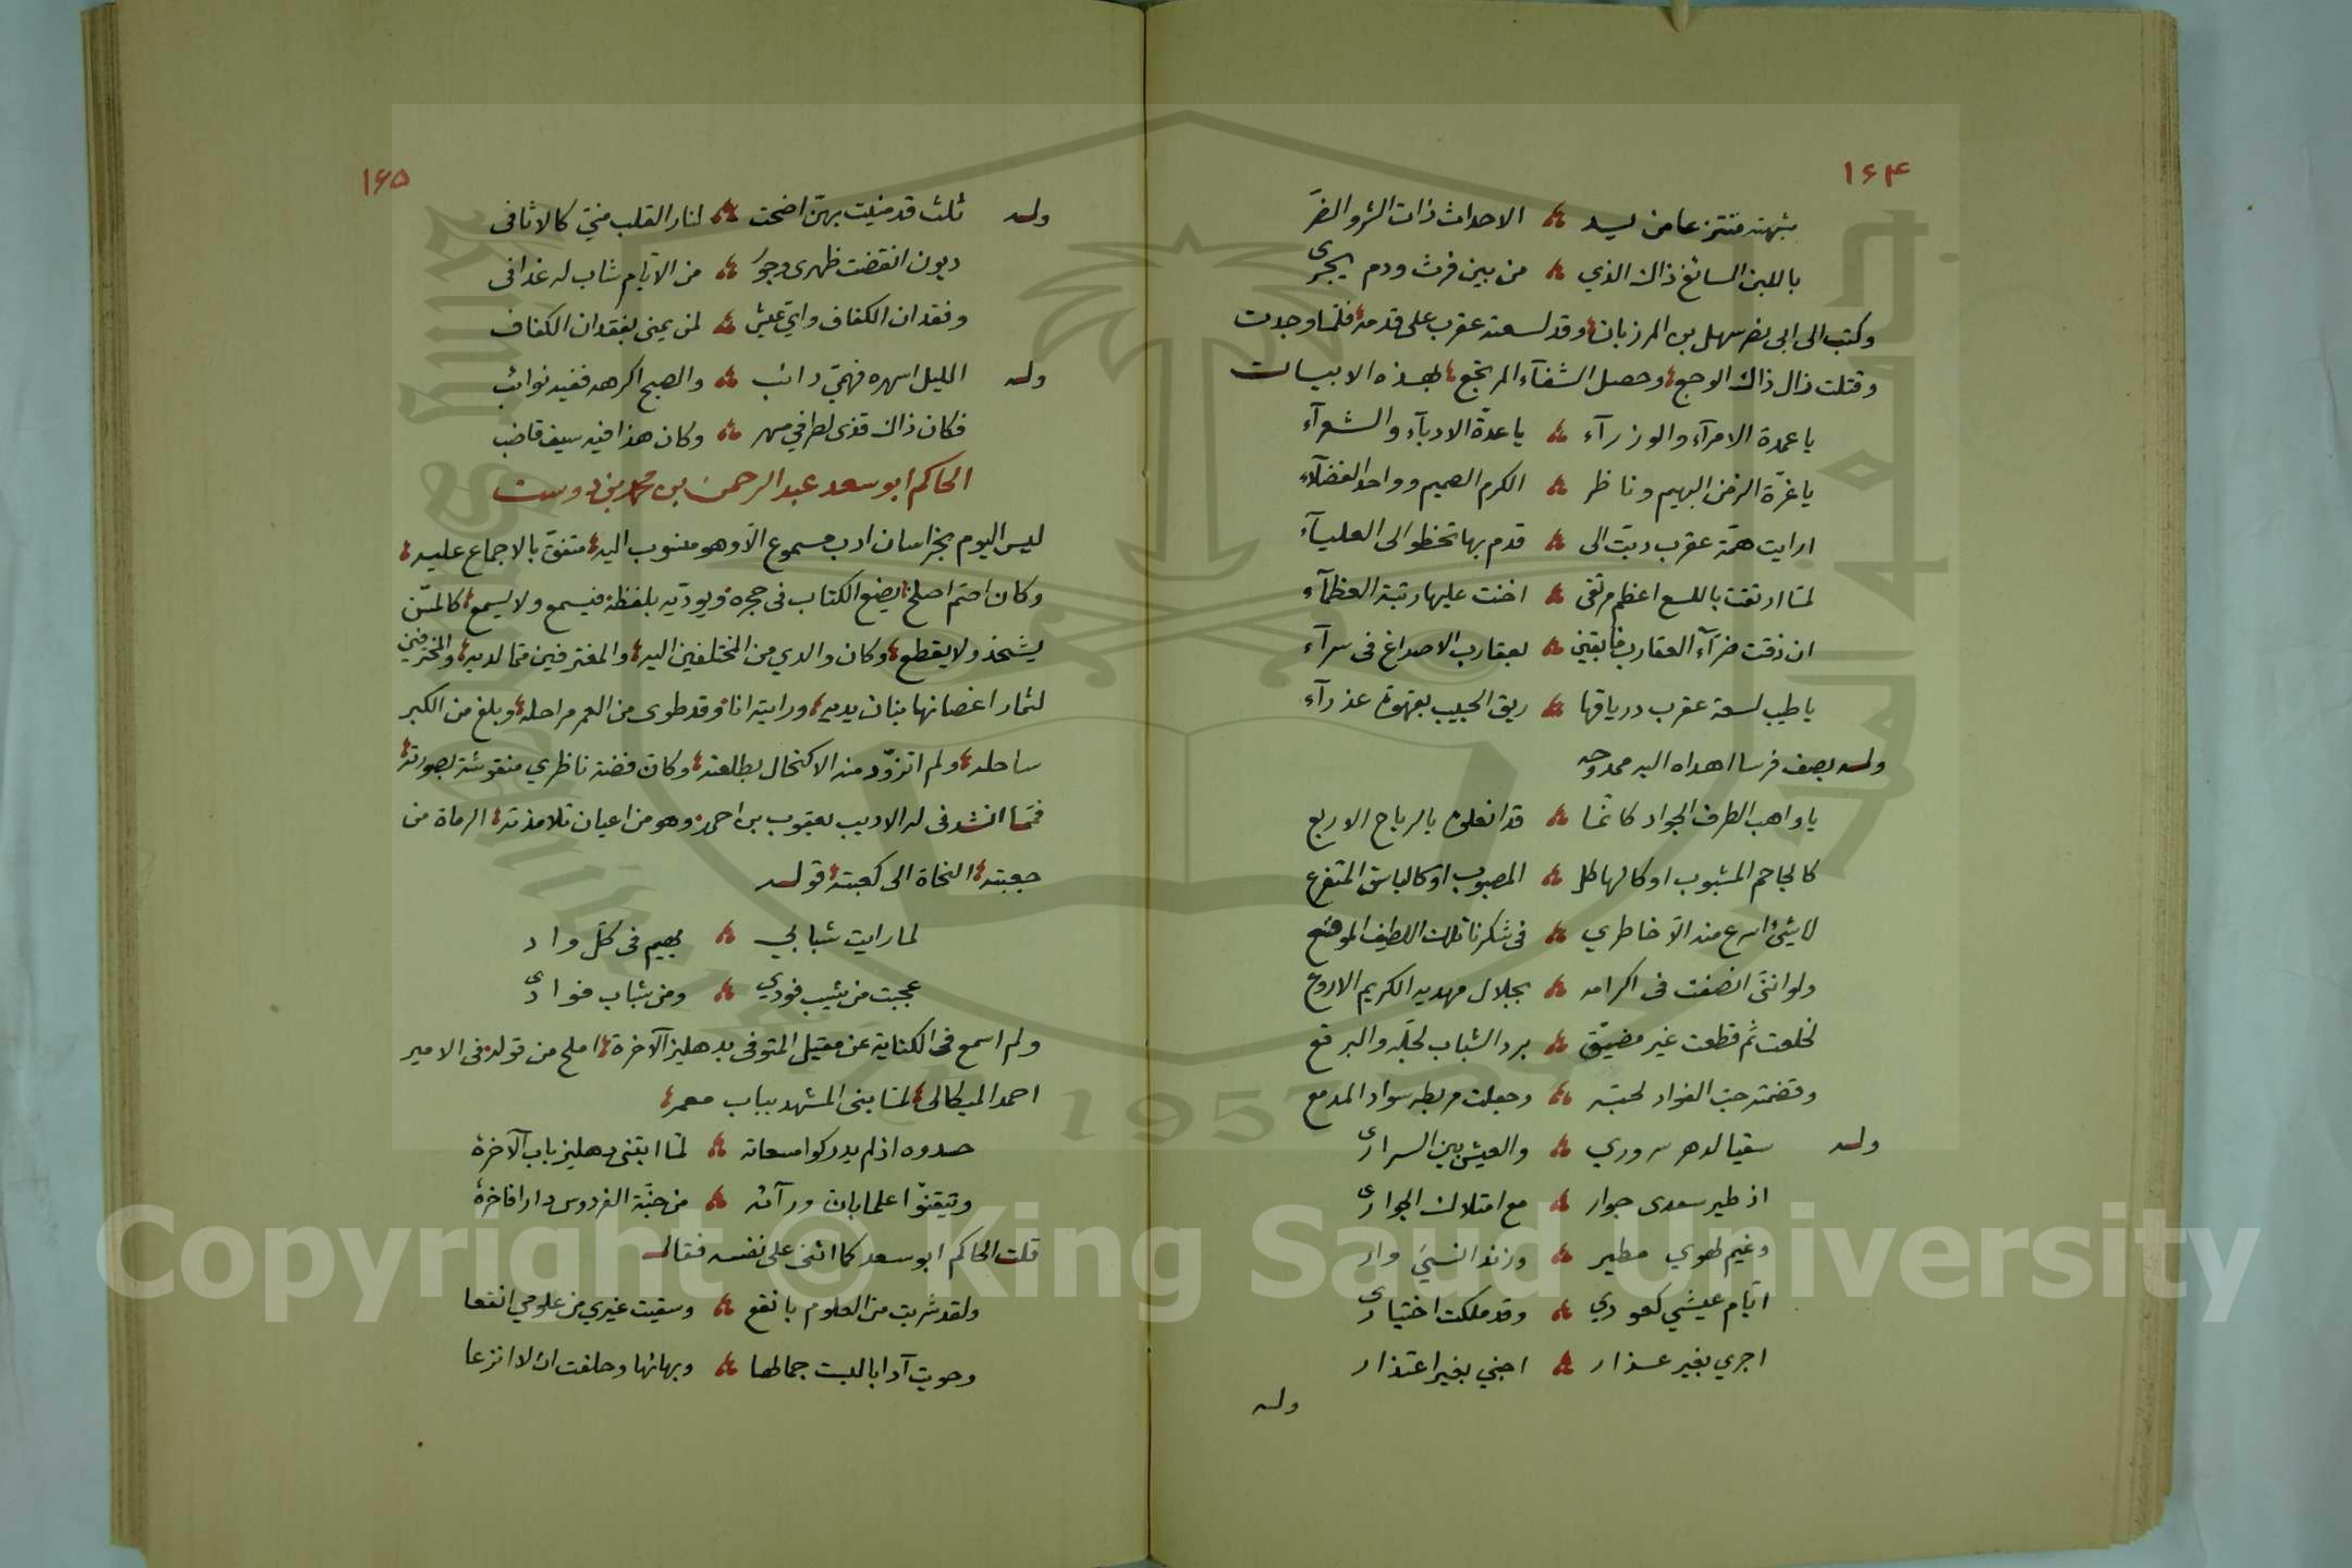 ١٦٤
شبهته منتزعا من يد ؞ الاحداث ذات الشر والضرّ
باللبن السائغ ذاك الذي ؞ من بين فرث ودم يجرى
وكتب الى ابى نصر سهل بن المرزبان وقد لسعته عقرب على قدمه فلما وجدت
وقتلت زال ذاك الوجع وحصل الشفآء المرتجع بهذه الابيات
يا عمدة الامرآء والوزرآء ؞ يا عدّة الادبآء والشعرآء
يا غرّة الزمن البهيم وناظر ؞ الكرم الصميم وواحد الفضلآء
ارايت همّة عقرب دبّت الى ؞ قدم بها تخطو الى العليآء
لمّا ارتقت باللسع اعظم مرتقى ؞ اخنت عليها رتبة العظمآء
ان ذقت ضرّآء العقارب فابقين ؞ بعقارب الاصداغ فى سرآء
يا طيب لسعة عقرب درياقها ؞ ريق الحبيب بقهوة عذرآء
وله يصف فرسا اهداه اليه ممدوحه
يا واهب الطرف الجواد كانّما ؞ قد انعلوه بالرياح الاربع
كالجاحم المشبوب او كالهاطل ؞ المصبوب او كالباشق المتفرع
لا شئ اسرع منه الّا خاطري ؞ فى شكرنائلك اللطيف الموقع
ولو اننّى انصفت فى اكرامه ؞ بجلال مهديه الكريم الاروع
لخلعت ثم قطعت غير مضيّق ؞ برد الشباب لجلّه والبرقع
وقضمته حبّ الفواد لحبّه ؞ وجعلت مربطه سواد المدمع
وله سقيا لدهر سروري ؞ والعيش بين السرارى
اذ طير سعدى جوار ؞ مع امتلاك الجوارى
وغيم لهوي مطير ؞ وزند انسيَ وار
ايّام عيشي كعودي ؞ وقد ملكت اختيارى
اجري بغير عذار ؞ اجني بغير اعتذار
وله
١٦٥
وله ثلث قد منيت بهنّ اضحت ؞ لنار القلب منيّ كالاثافى
ديون انقضت ظهرى وجورٌ ؞ من الايّام شاب له غدافى
وفقدان الكفاف وايّ عيش ؞ لمن يمنى بفقدان الكفاف
وله الليل اسهره فهميّ رائب ؞ والصبح اكرهه ففيه نوائب
فكان ذاك قذى لطرافي مسهر ؞ وكان هذا فيه سيف قاضب
الحاكم ابو سعد عبد الرحمن بن محمد بن دوست
ليس اليوم بخراسان ادب مسموع الّا وهو منسوب اليه متفقّ بالاجماع عليه
وكان اصمّ اصلخ يضع الكتاب فى حجره ويودّيه بلفظه فيسمع ولا يسمع كالمسّن
يشحذ ولا يقطع وكان والدي من المختلفين اليه والمغترفين ممّا لديه والمخترفين
لثمار اغصانها بنان يديه ورايته انا وقد طوى من العمر مراحله وبلغ من الكبر
ساحله ولم اتزوّد منه الا كتحال بطلعته وكان فضة ناظري منقوشة بصورته
فممّا انشدنى له الاديب يعقوب بن احمد وهو من اعيان تلامذته الرماة من
جعبته النحاة الى كعبته قوله
لما رايت شبابي ؞ يهيم فى كلّ واد
عجبت من شيب فودي ؞ ومن شباب فوادى
ولم اسمع فى الكناية عن مقيل المتوفى بدهليز الآخرة املح من قوله فى الامير
احمد الميكالى لمّا بنى المشهد بباب معمر
حسدوه اذ لم يدركوا مسعاته ؞ لمّا ابتنى دهليز باب الآخرة
وتيقنوّا علما بان ورآئه ؞ من جنّة الفردوس دارا فاخرة
قلت الحاكم ابو سعد كما اثنى على نفسه فقال
ولقد شربت من العلوم بانقع ؞ وسقيت غيري من علومي انقعا
وحويت آدابا لبست جمالها ؞ وبهائها وحلفت ان لا انزعا
1957
Copyright © King Saud University